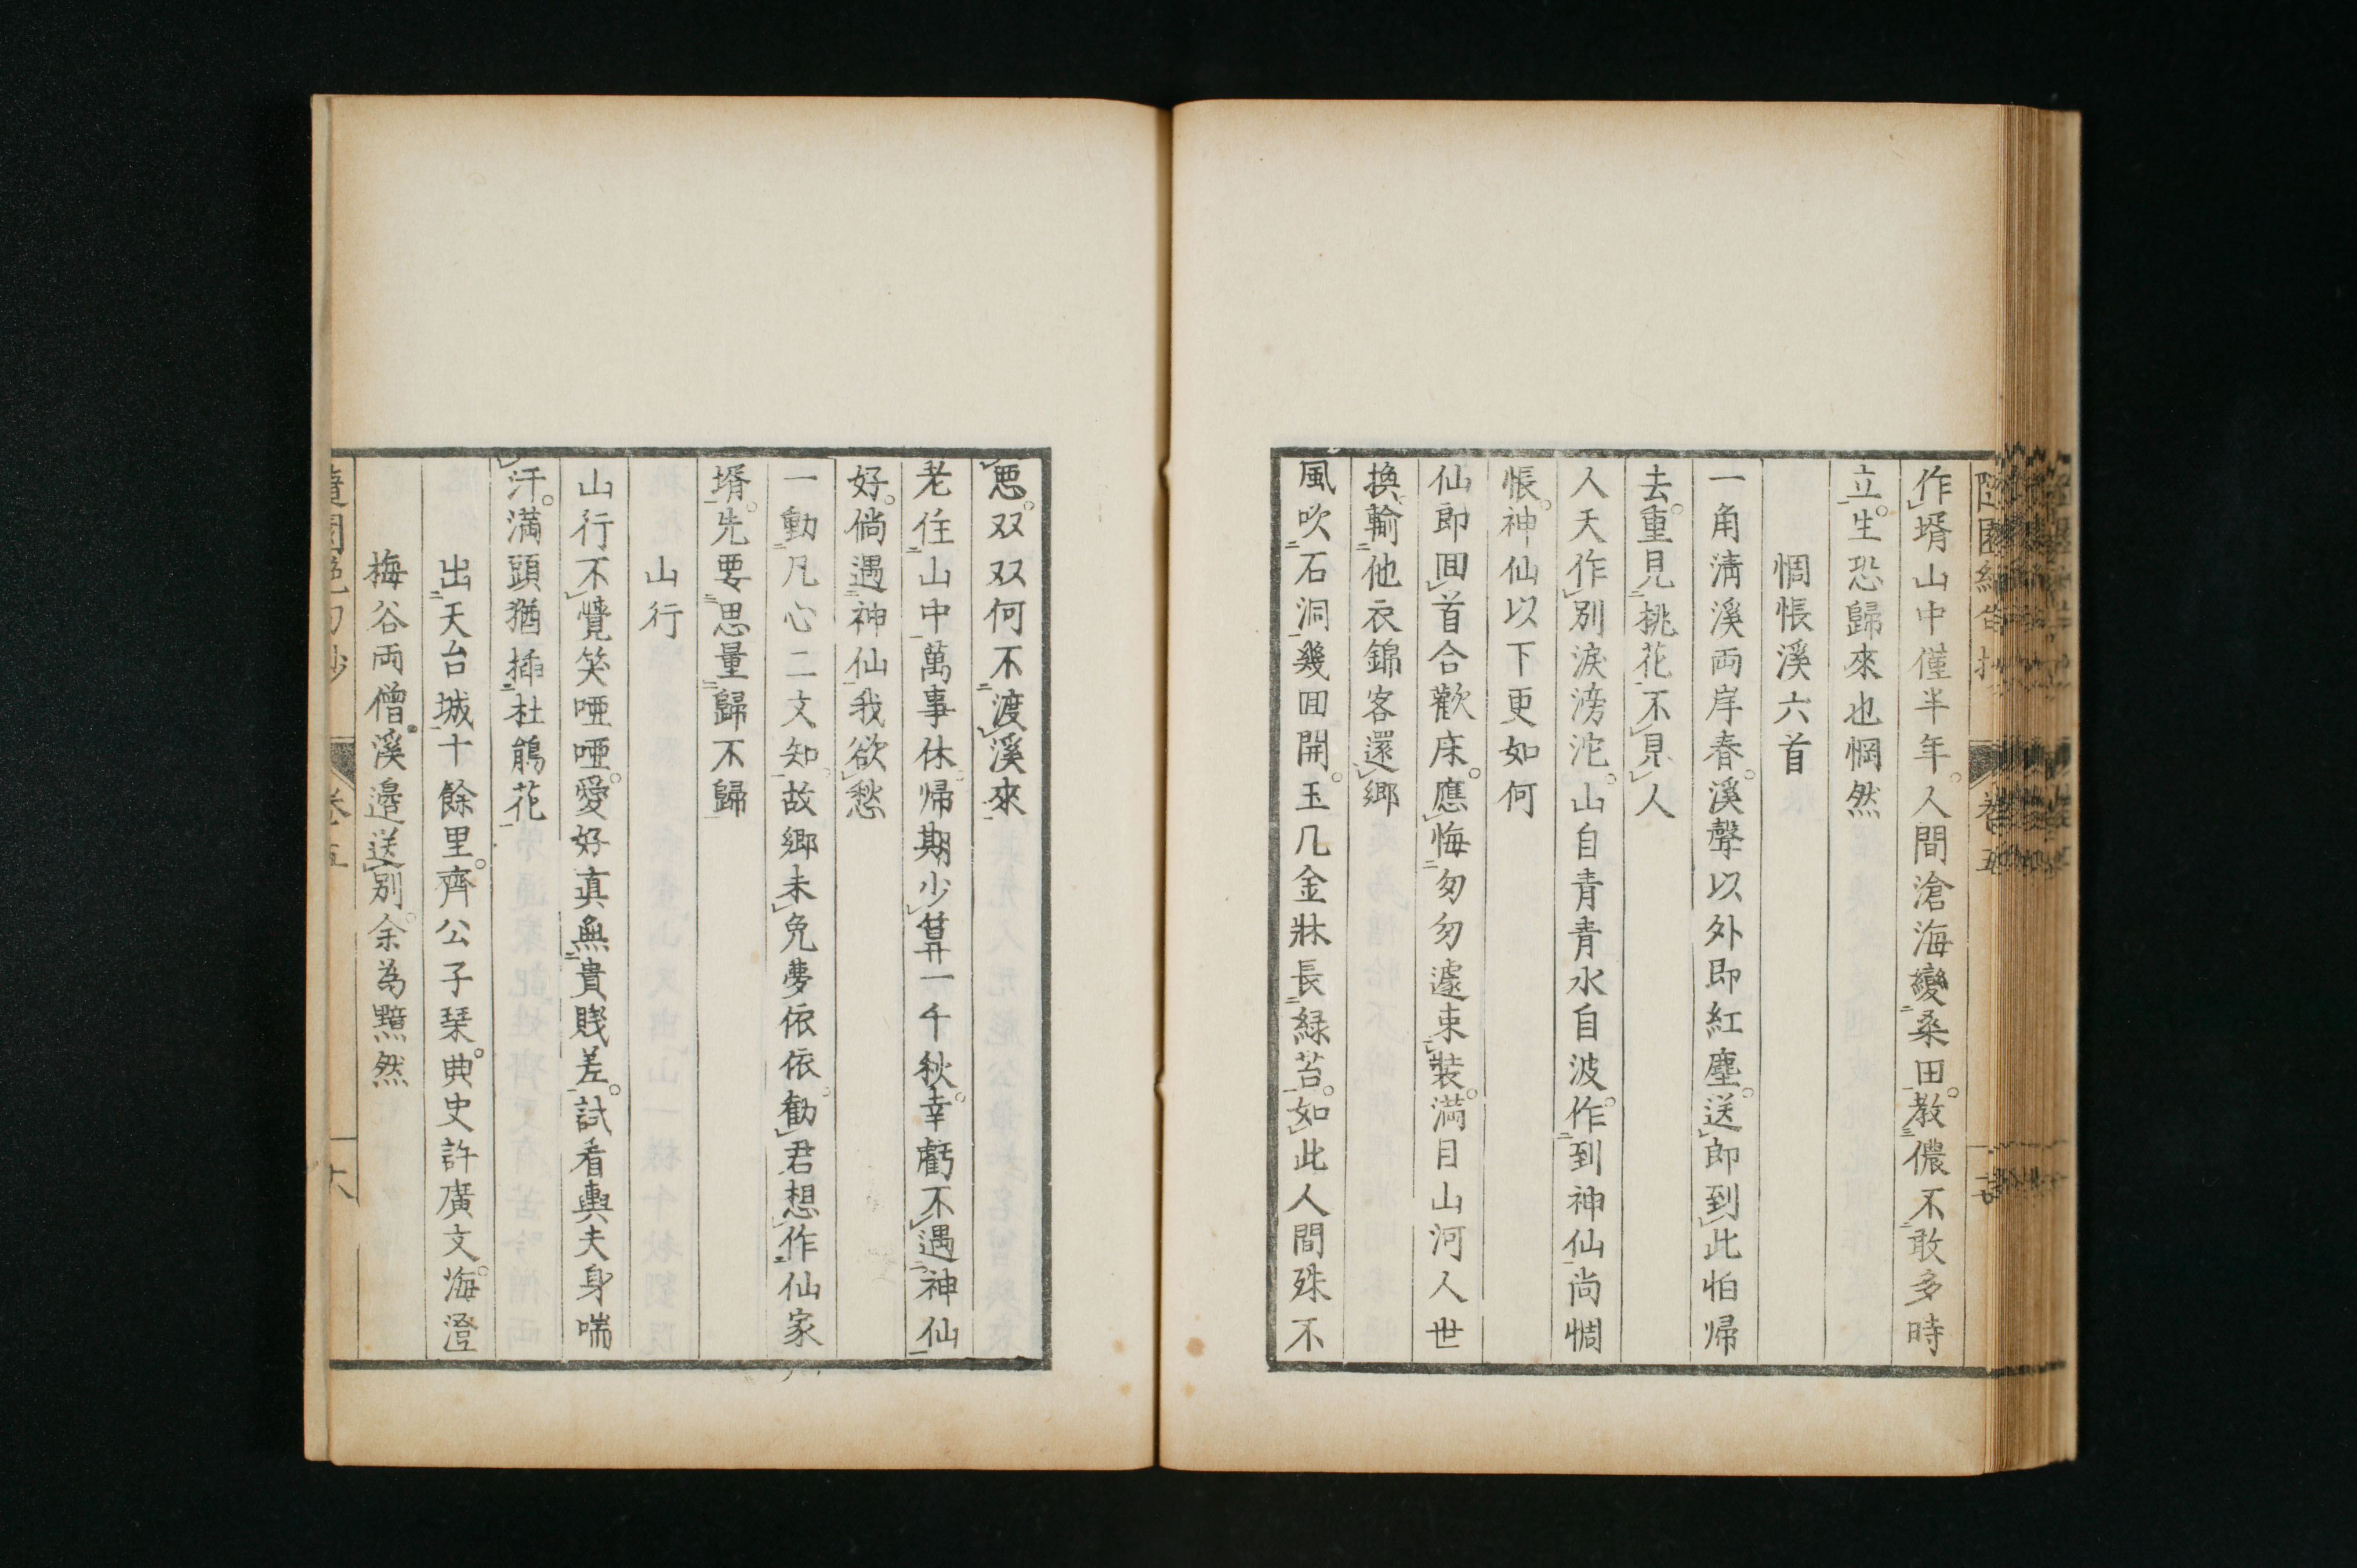 作壻山中僅半年。人間滄海變桑田。教儂不敢多時
立。生恐歸來也惘然
惆悵溪六首
一角清溪両岸春。溪聲以外即紅塵。送郎到此怕帰
去。重見桃花不見人
人天作別淚滂沱。山自青青水自波。作到神仙尚惆
悵。神仙以下更如何
仙郎囬首合歡床。應悔匆匆遽束裝。満目山河人世
換。輸他衣錦客還鄉
風吹石洞幾囬開。玉几金牀長緑苔。如此人間殊不
悪。双双何不渡溪來
老住山中萬事休。帰期少算一千秋。幸虧不遇神仙
好。倘遇神仙我欲愁
一動凡心二丈知。故郷未免夢依依。勧君想作仙家
壻。先要思量歸不歸
山行
山行不覺笑唖唖。愛好真無貴賎差。試看輿夫身喘
汗。満頭猶插杜鵑花
出天台城十餘里。齊公子琹。典史許廣文。海澄
梅谷両僧。溪邉送別。余為黯然
卷五